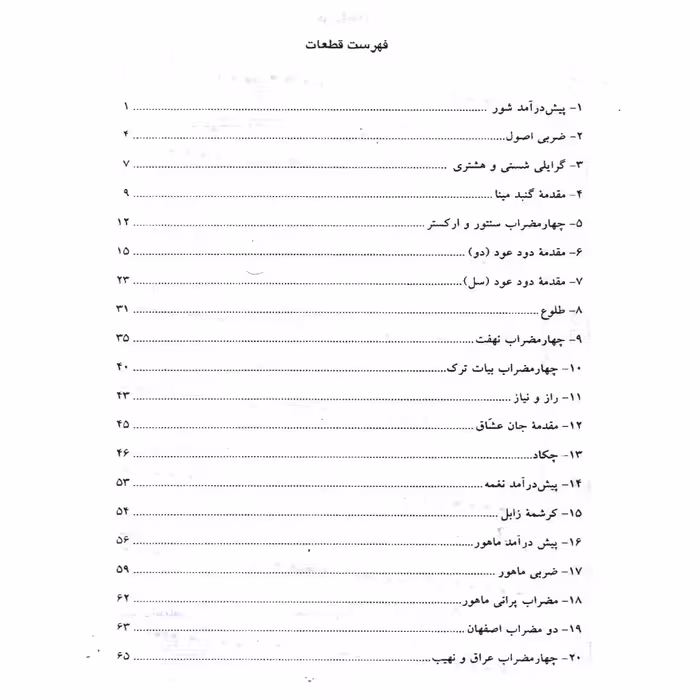 فهرست قطعات
۱- پیش‌درآمد شور ........ ۱
۲- ضربی اصول ........ ۴
۳- گرایلی شستی و هشتری ........ ۷
۴- مقدمهٔ گنبد مینا ........ ۹
۵- چهارمضراب سنتور و ارکستر ........ ۱۲
۶- مقدمهٔ دود عود (دو) ........ ۱۵
۷- مقدمهٔ دود عود (سل) ........ ۲۳
۸- طلوع ........ ۳۱
۹- چهارمضراب نهفت ........ ۳۵
۱۰- چهارمضراب بیات ترک ........ ۴۰
۱۱- راز و نیاز ........ ۴۳
۱۲- مقدمهٔ جان عشّاق ........ ۴۵
۱۳- چکاد ........ ۴۶
۱۴- پیش‌درآمد نغمه ........ ۵۳
۱۵- کرشمهٔ زابل ........ ۵۴
۱۶- پیش درآمد ماهور ........ ۵۶
۱۷- ضربی ماهور ........ ۵۹
۱۸- مضراب پرانی ماهور ........ ۶۲
۱۹- دو مضراب اصفهان ........ ۶۳
۲۰- چهارمضراب عراق و نهیب ........ ۶۵